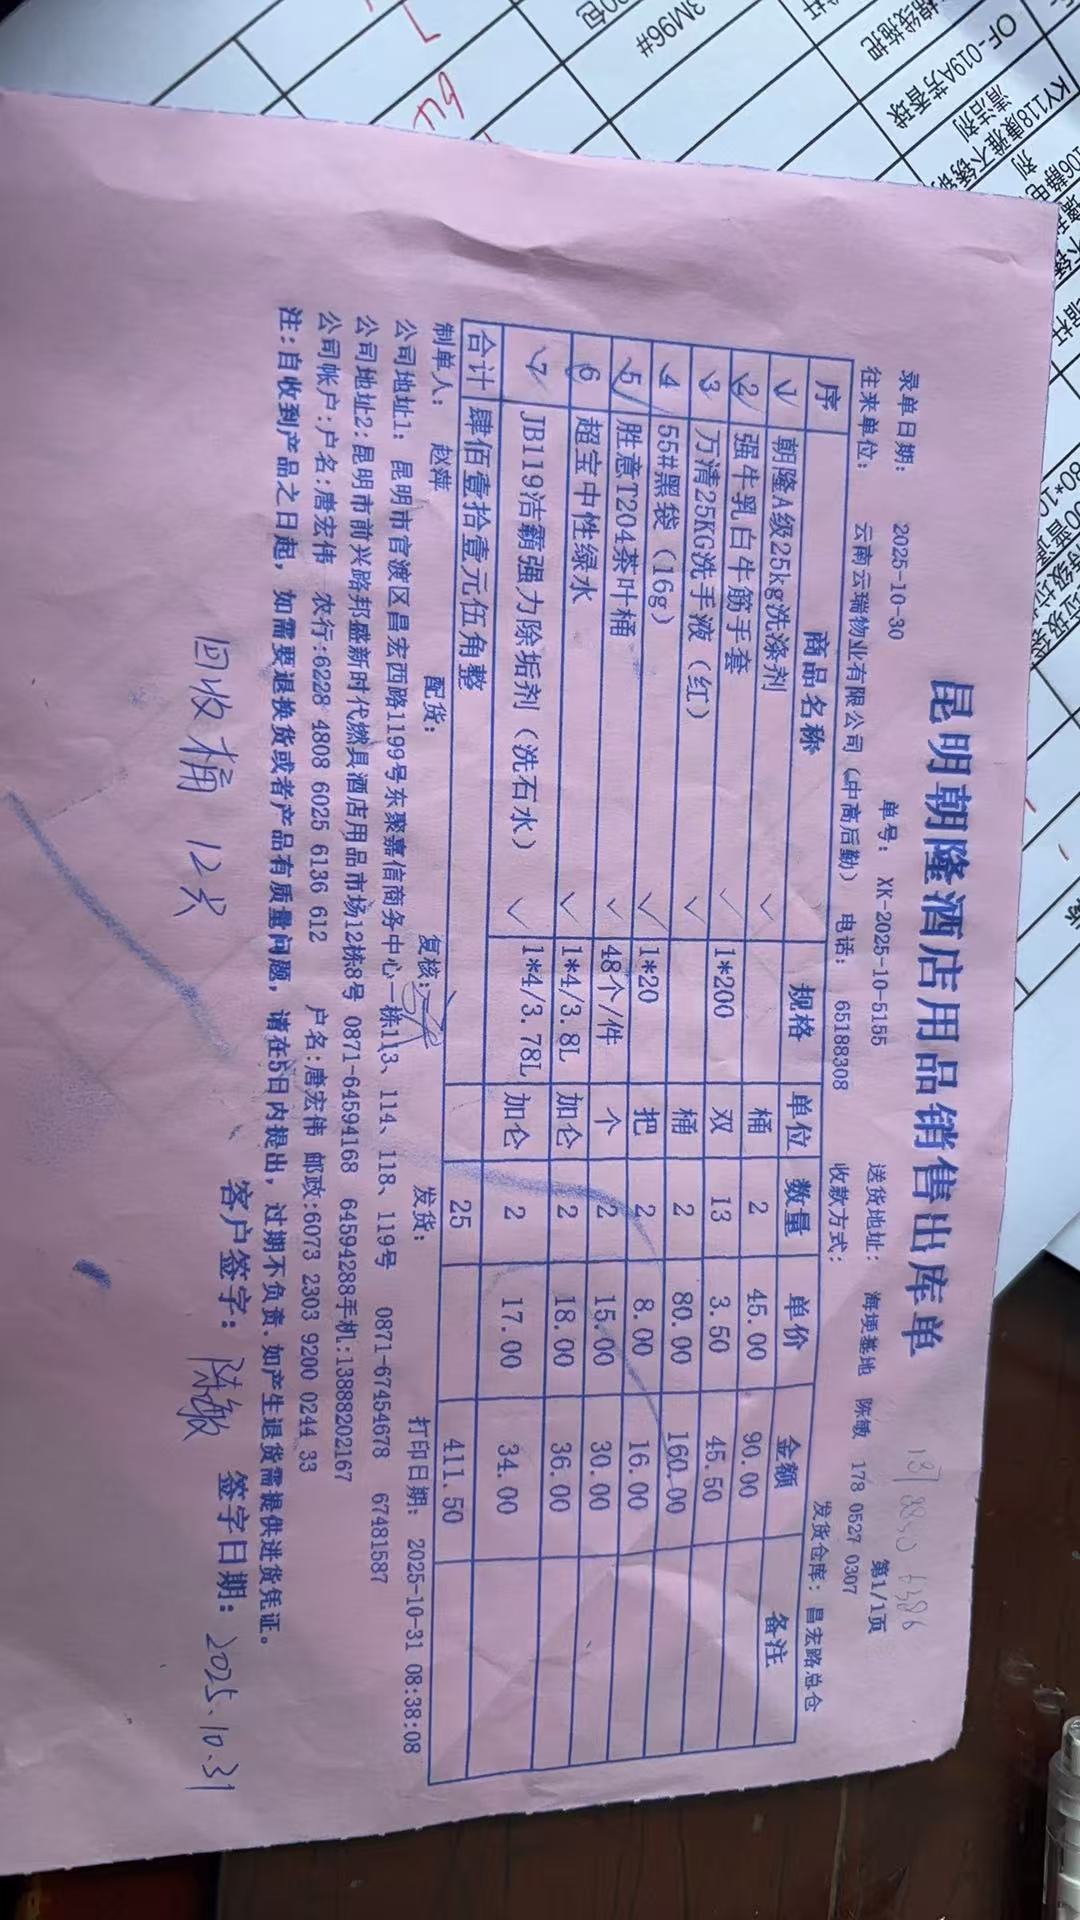 昆明朝隆酒店用品销售出库单
单号： XK-2025-10-5155 第1/1页
录单日期： 2025-10-30 送货地址： 海埂基地 陈敏 178 0527 0307
往来单位： 云南云瑞物业有限公司（中高后勤） 电话： 65188308 收款方式： 发货仓库：昌宏路总仓
序 商品名称 规格 单位 数量 单价 金额 备注
1 朝隆A级25kg洗涤剂 ✓ 桶 2 45.00 90.00
2 强牛乳白牛筋手套 ✓ 1*200 双 13 3.50 45.50
3 万清25KG洗手液（红） ✓ 桶 2 80.00 160.00
4 55#黑袋（16g） ✓ 1*20 把 2 8.00 16.00
5 胜意T204茶叶桶 ✓ 48个/件 个 2 15.00 30.00
6 超宝中性绿水 ✓ 1*4/3.8L 加仑 2 18.00 36.00
7 JB119洁霸强力除垢剂（洗石水） ✓ 1*4/3.78L 加仑 2 17.00 34.00
合计 肆佰壹拾壹元伍角整 25 411.50
制单人： 赵萍 配货： 复核： 发货： 打印日期： 2025-10-31 08:38:08
公司地址1： 昆明市官渡区昌宏西路1199号东聚嘉信商务中心一栋113、114、118、119号 0871-67454678 67481587
公司地址2:昆明市前兴路邦盛新时代燃具酒店用品市场12栋8号 0871-64594168 64594288手机:13888202167
公司帐户:户名:唐宏伟 农行:6228 4808 6025 6136 612 户名:唐宏伟 邮政:6073 2303 9200 0244 33
注:自收到产品之日起，如需要退换货或者产品有质量问题，请在5日内提出，过期不负责.如产生退货需提供进货凭证。
客户签字： 陈敏 签字日期： 2025.10.31
回收桶 12只
3M96#
OF-019A芳香球
KY118康雅不锈钢
清洁剂